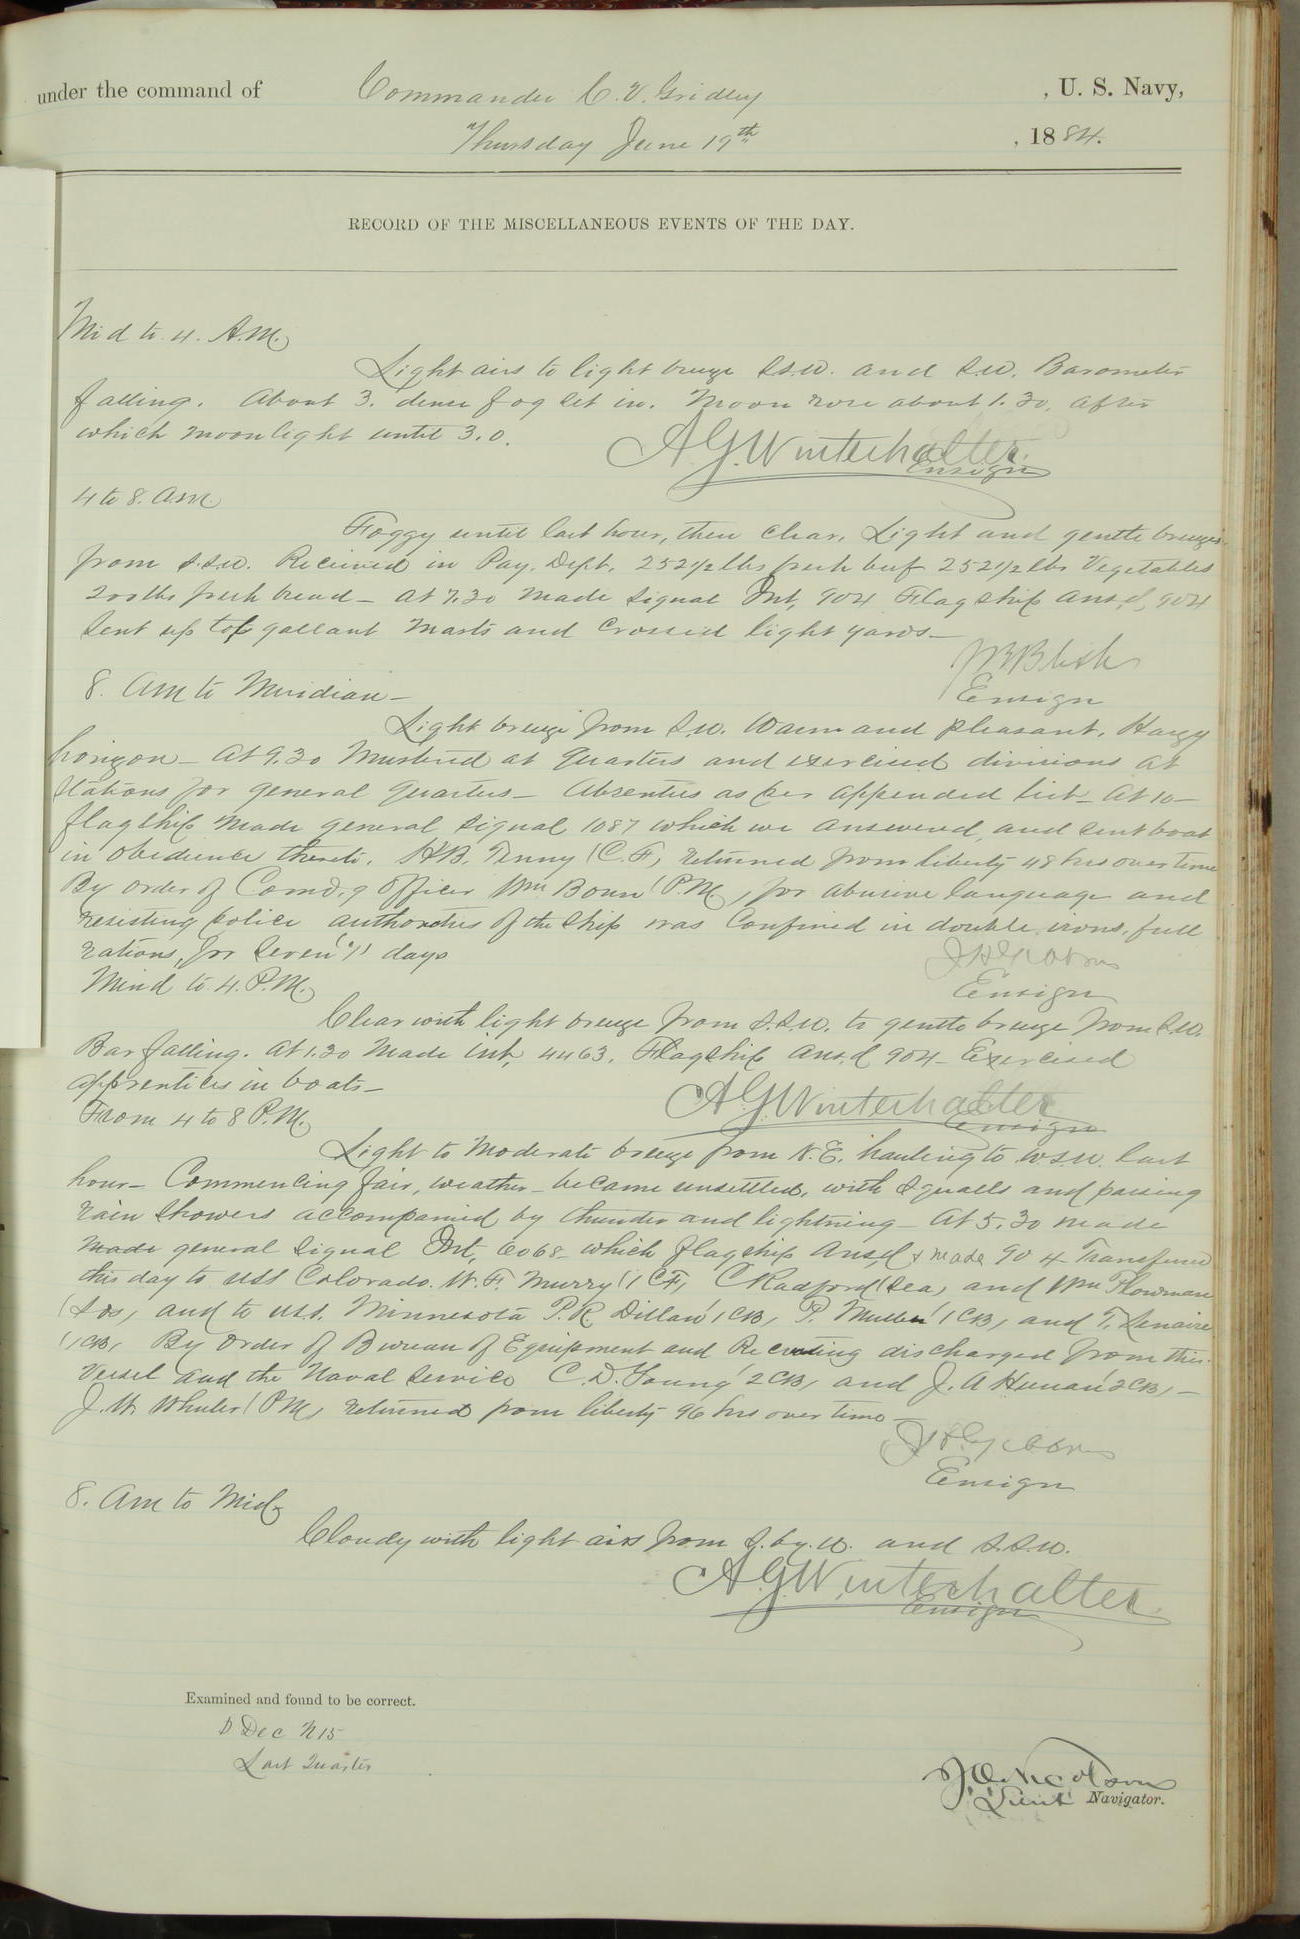 under the command of Commander C. V. Gridley , U. S. Navy,
Thursday June 19th , 1884.
RECORD OF THE MISCELLANEOUS EVENTS OF THE DAY.
Mid to 4. A.M.
Light airs to light breeze S.S.W. and S.W. Barometer
falling. About 3. dense fog set in. Moon rose about 1.30, after
which moonlight until 3.0.
A.G. Winterhalter
Ensign
4 to 8. A.M.
Foggy until last hour, then clear. Light and gentle breezes
from S.S.W. Received in Pay. Dept. 252 1/2 lbs fresh beef 252 1/2 lbs Vegetables
200 lbs fresh bread – At 7.30 made signal Int. 904 Flagship Ans'd, 904
Sent up top gallant masts and crossed light yards –
J B Blish
Ensign
8. AM to Meridian –
Light breeze from S.W. Warm and pleasant. Hazy
horizon – At 9.30 Mustered at Quarters and exercised divisions at
stations for general quarters – Absentees as per appended list – At 10 –
flagship made general signal 1087 which we answered, and sent boat
in obedience thereto. H.B. Tenny (C.F.) returned from liberty 48 hrs over time
By order of Comd'g Officer Wm Bown (P.M.), for abusive language and
resisting police authorities of the ship was confined in double irons, full
rations, for seven (7) days
Ensign
Mind to 4. P.M.
Clear with light breeze from S.S.W. to gentle breeze from S.W.
Bar falling. At 1.30 Made Int, 4463, Flagship Ans'd 904 – Exercised
apprentices in boats –
A.G. Winterhalter
Ensign
From 4 to 8 P.M.
Light to moderate breeze from N.E. hauling to W.S.W. last
hour – Commencing fair, weather – became unsettled, with squalls and passing
rain showers accompanied by thunder and lightning – At 5.30 made
made general signal Int, 6068 – which flagship Ans'd & made 904 Transferred
this day to USS Colorado. W. F. Murry (1 CF), C Radford (Sea) and Wm Plowman
(Los) and to U.S.S. Minnesota P. R. Dillan (1CB), P. Mullen (1CB), and T. Lenaire
(1CB), By order of Bureau of Equipment and Recruiting discharged from this
Vessel and the Naval Service C. D. Young (2CB), and J. A Heenan (2CB), –
J. W. Wheeler (PM) returned from liberty 96 hrs over time –
Ensign
8. Am to Mid,
Cloudy with light airs from S. by. W. and S.S.W.
A.G. Winterhalter
Ensign
Examined and found to be correct.
Last Quarter
Lieut Navigator.